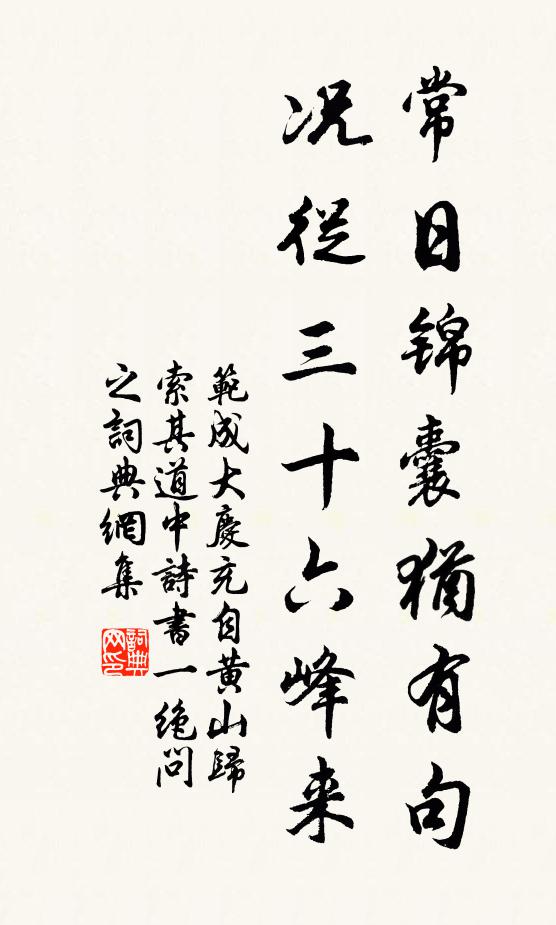 常日錦囊猶有句
况從三十六峰来
範成大慶充自黄山歸
索其道中詩書一絶問
之詞典網集
詞典网印